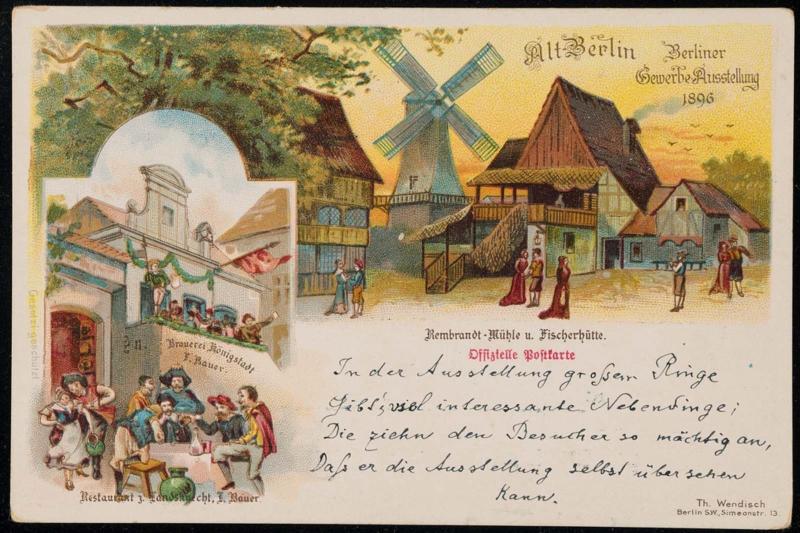 Alt-Berlin
Berliner
Gewerbe-Ausstellung
1896
Gesetzl. geschützt
Brauerei Königstadt
F. Bauer.
Restaurant z. Landsknecht, F. Bauer.
Rembrandt-Mühle u. Fischerhütte.
Offizielle Postkarte
In der Ausstellung großem Ringe
Gibt's viel interessante Nebendinge;
Die ziehn den Besucher so mächtig an,
Daß er die Ausstellung selbst übersehen
kann.
Th. Wendisch
Berlin S.W., Simeonstr. 13.